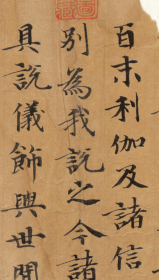 百末利伽及諸信
別為我說之今諸
具說儀飾與世間